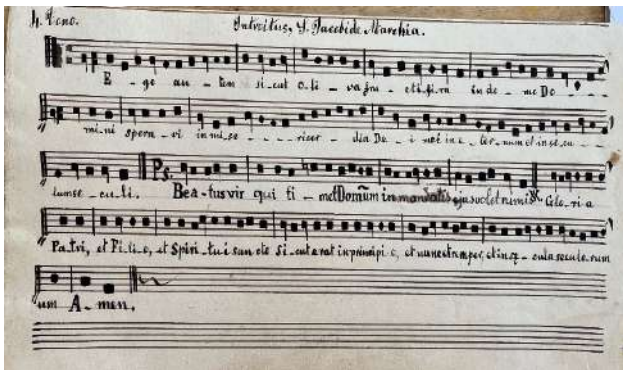 4. Tono. Introitus, S. Jacobi de Marchia.
E - go au - tem si - cut o - li - va fru - cti - fi - ra in do - mo Do - - - -
mi - ni spera - vi in mi - se - - - - - ricor - dia De - i mei in e - ter - num et in se - cu - - -
lum se - cu - li. Ps. Bea - tus vir qui ti - met Dominum in mandatis ejus volet nimis Glo - ri - a
Pa - tri, et Fi - li - o, et Spiri - tu - i san - cto Si - cut erat in principi - o, et nunc et semper, et in - cula secula - rum
um A - men.